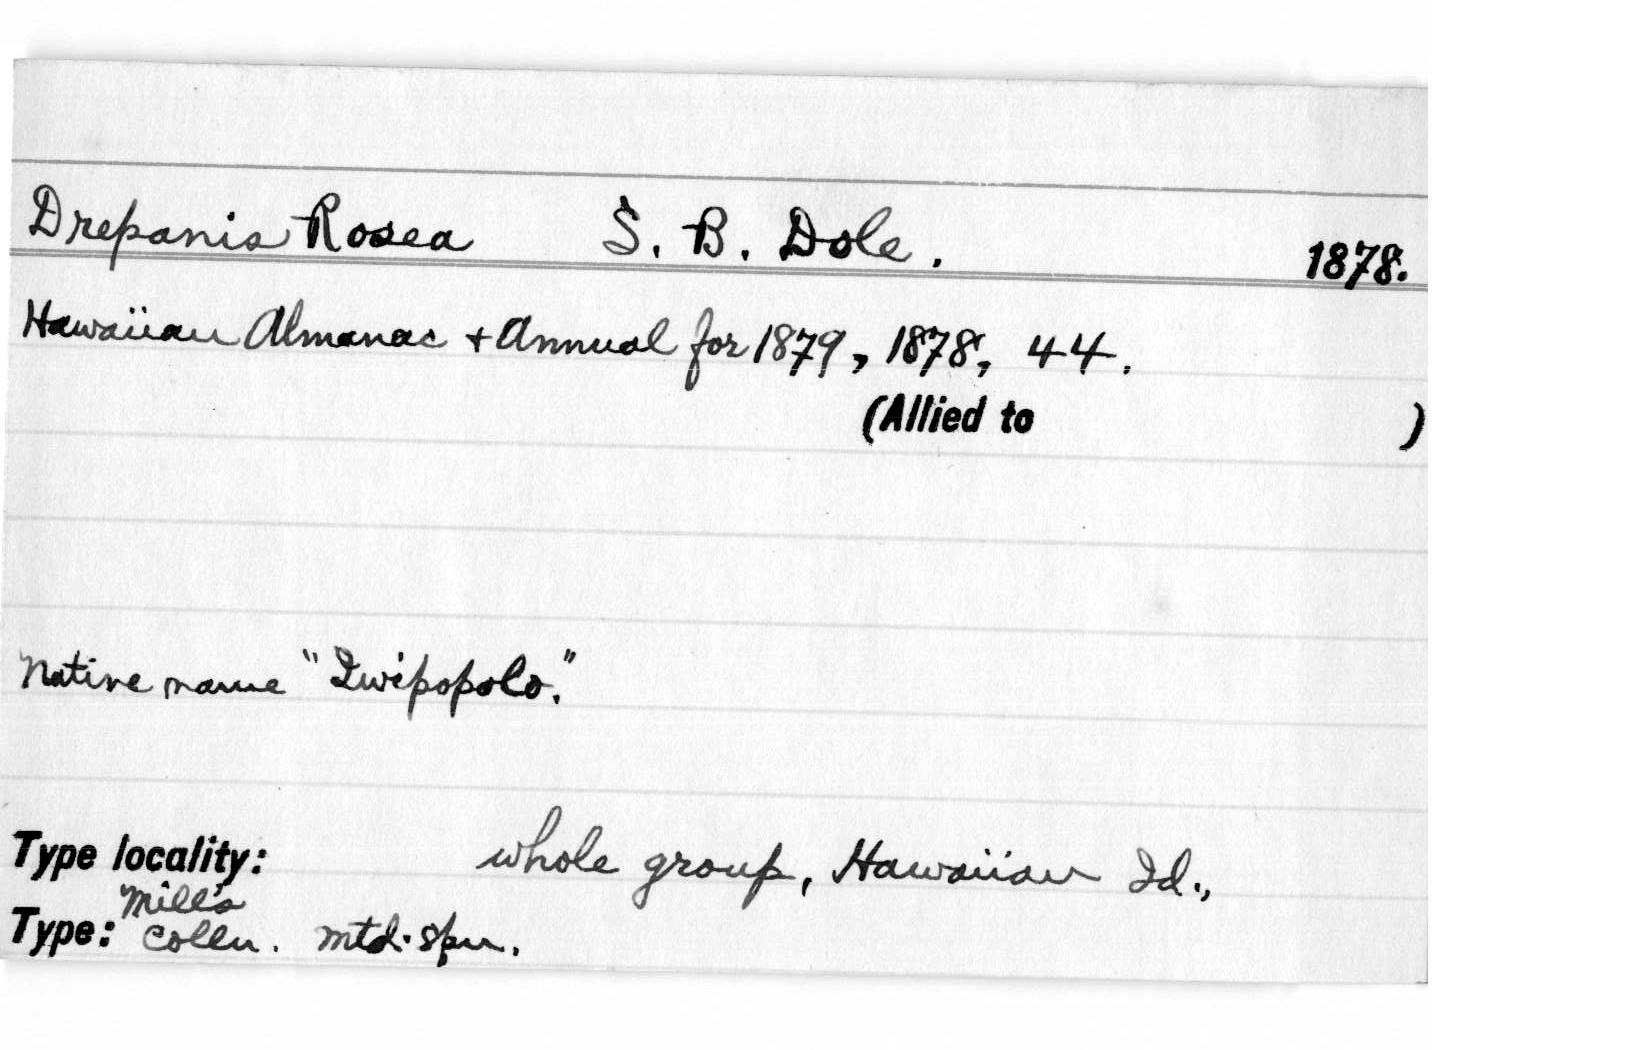 Drepanis Rosea S. B. Dole. 1878.
Hawaiian Almanac + Annual for 1879, 1878, 44.
(Allied to )
Native name "Iwipopolo."
Type locality: whole group, Hawaiian Id.,
Mill's
Type: Colln. mtd. spn.